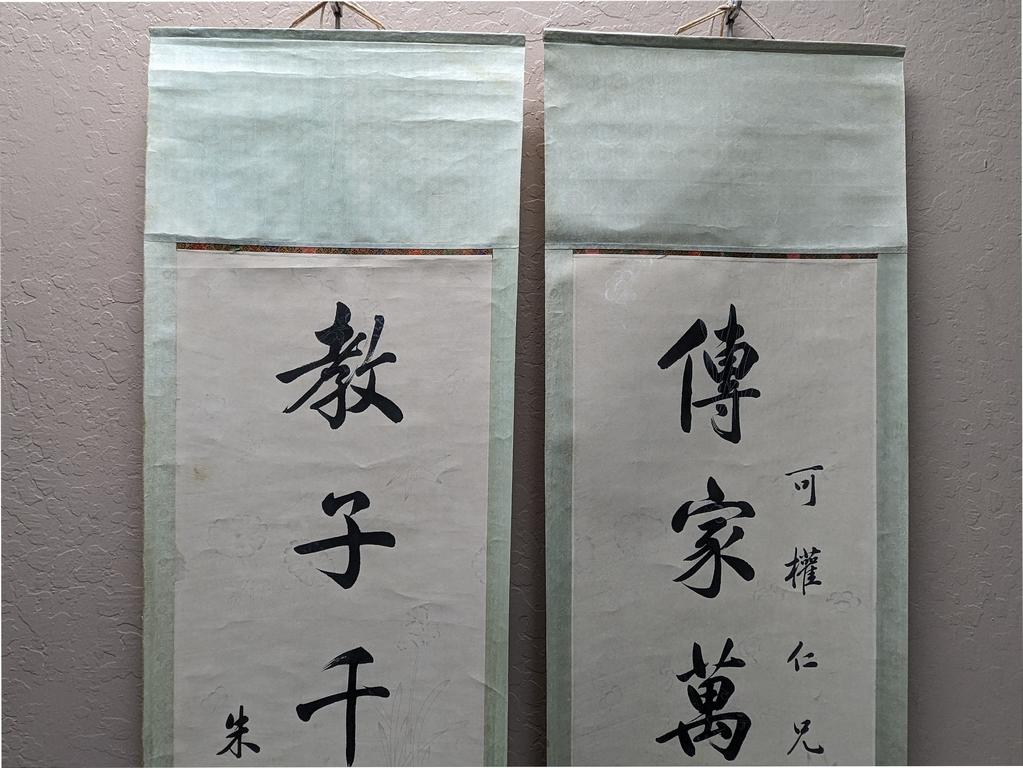 傳家萬
可權仁兄
教子千
朱